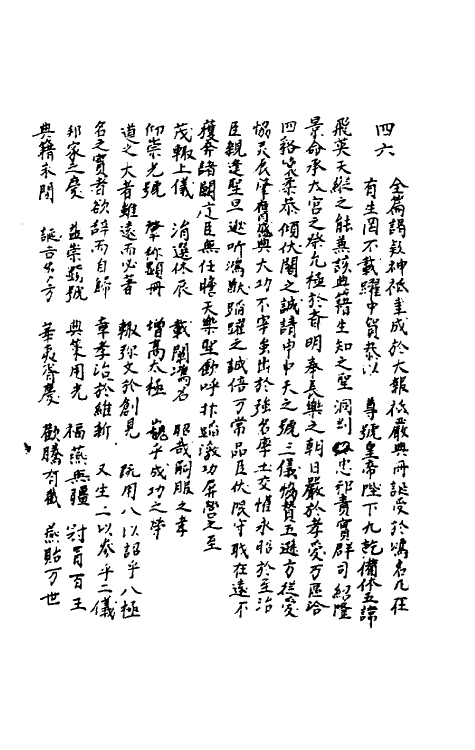 四六
全篇謁款神祗重成於大報祗嚴典冊誕受於鴻名凡在
有生罔不載躍中賀恭以 尊號皇帝陛下九乾備休五諦
飛英天縱之能兼該典籍生知之聖洞
忠邪責實群司紹隆
景命承大宮之祭九極於齋明奉長樂之朝日嚴於孝愛万區洽
四裕 柔恭傾伏閣之誠請申中天之號三儀協贊五遜方從爰
協天辰肇 盛典大功不宰虽出於強名率土交懽永昭於至治
臣親逢聖旦逖听鴻歎蹈躍之誠倍万常品臣伏限守職在遠不
獲奔詣闕庭臣無任瞻天樂聖歡呼抃蹈激切屏營之至
茂輙上儀 涓選休辰 載闡鴻名 昭哉嗣服之孝
仰崇光號 肇称顯冊 增高太極 巍乎成功之举
道之大者難遠而必著 輙弥文於創見 既用八以詔乎八極
名之實者欲辞而自歸 章孝治於維新 又生二以參乎二儀
邦家之慶 益崇顯號 典策用光 福燕無疆 冠百王
典籍未聞 誕告多方 華夷胥慶 歡騰有截 燕貽万世